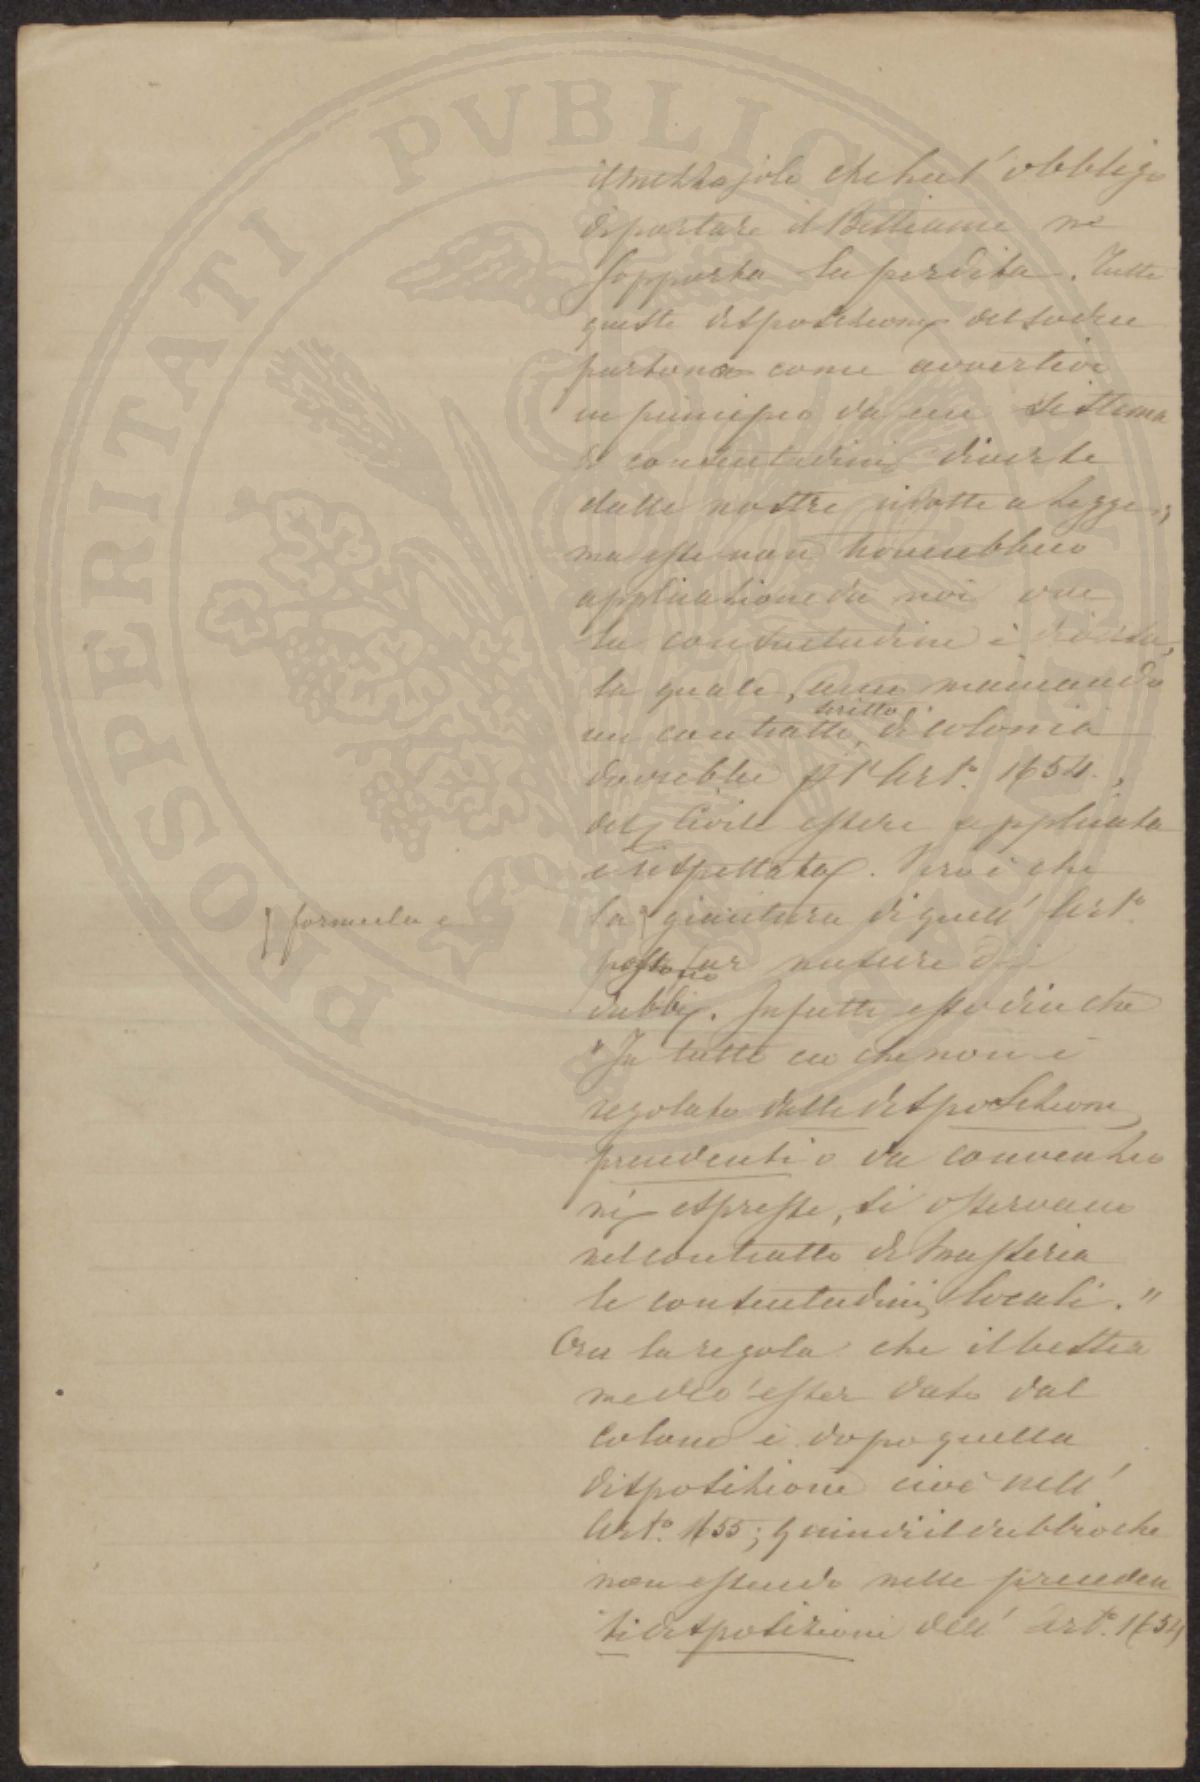 il mezzajolo che ha l' obbligo
di portare il Bestiame ne
sopporta la perdita. Tutte
queste disposizioni del Codice
partono come avvertivo
in principio da un sistema
di consuetudini diverse
dalle nostre ridotte a legge;
ma esse non troverebbero
applicazione da noi ove
la consuetudine è diversa,
la quale, anco mancando
un contratto scritto di colonia
dovrebbe pl' Art.º 1654.,
del Civile essere applicata
e rispettata. Vero è che
la } giacitura di quell' Art.º
} formula e
possono far nascere dei
dubbi. Infatti esso dice che
"In tutto ciò che non è
regolato dalle disposizioni
precedenti o da convenzio
ni espresse, si osservano
nel contratto di masseria
le consuetudini locali."
Ora la regola che il bestia
me deve esser dato dal
Colono è dopo quella
disposizione cioè nell'
Art.º 1655; quindi il dubbio che
non essendo nelle preceden
ti disposizioni dell' Art.º 1654